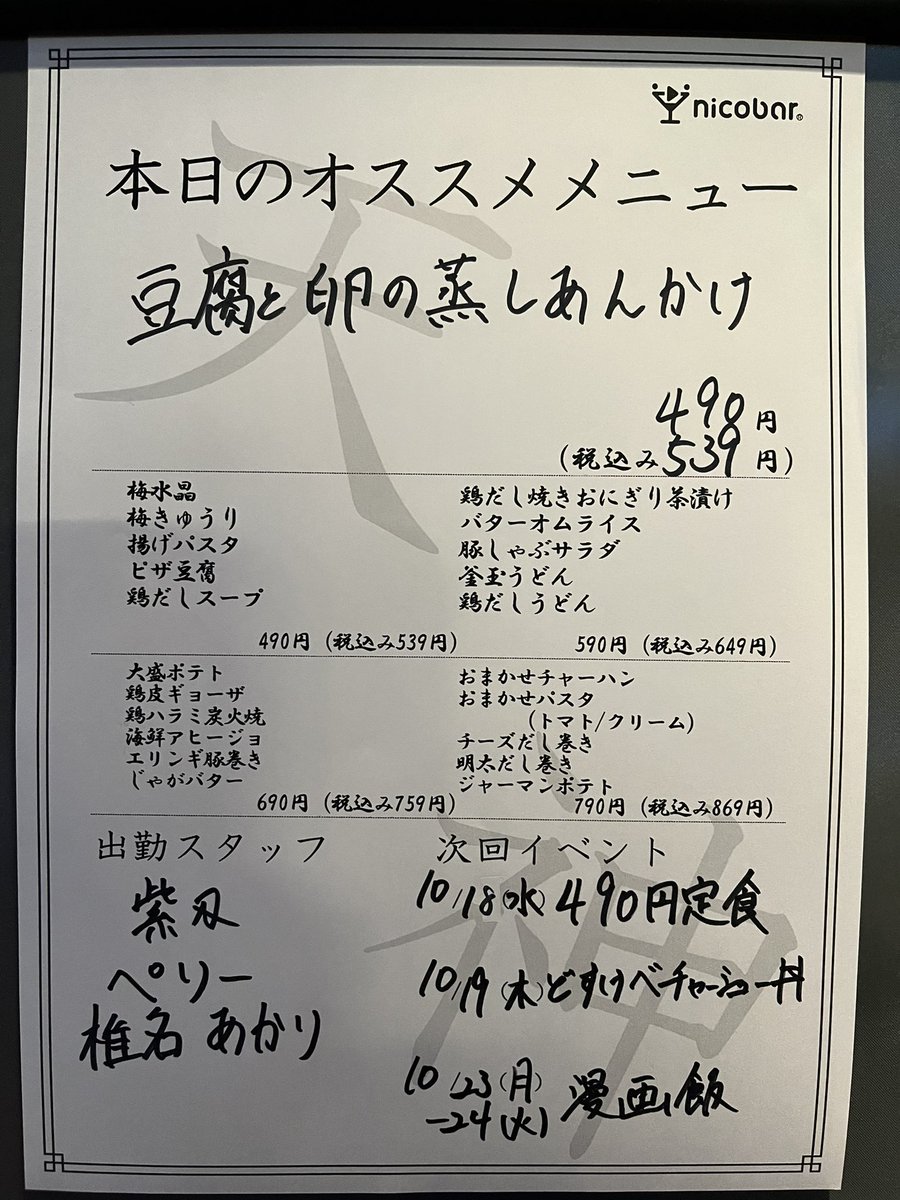 nicobar®
本日のオススメメニュー
豆腐と卵の蒸しあんかけ
490円
(税込み539円)
梅水晶
梅きゅうり
揚げパスタ
ピザ豆腐
鶏だしスープ
490円 (税込み539円)
鶏だし焼きおにぎり茶漬け
バターオムライス
豚しゃぶサラダ
釜玉うどん
鶏だしうどん
590円 (税込み649円)
大盛ポテト
鶏皮ギョーザ
鶏ハラミ炭火焼
海鮮アヒージョ
エリンギ豚巻き
じゃがバター
690円 (税込み759円)
おまかせチャーハン
おまかせパスタ
(トマト/クリーム)
チーズだし巻き
明太だし巻き
ジャーマンポテト
790円 (税込み869円)
出勤スタッフ
紫刃
ペリー
椎名 あかり
次回イベント
10/18(水) 490円定食
10/19(木)どすけべチャーシュー丼
10/23(月)
-24(火) 漫画飯
天
神